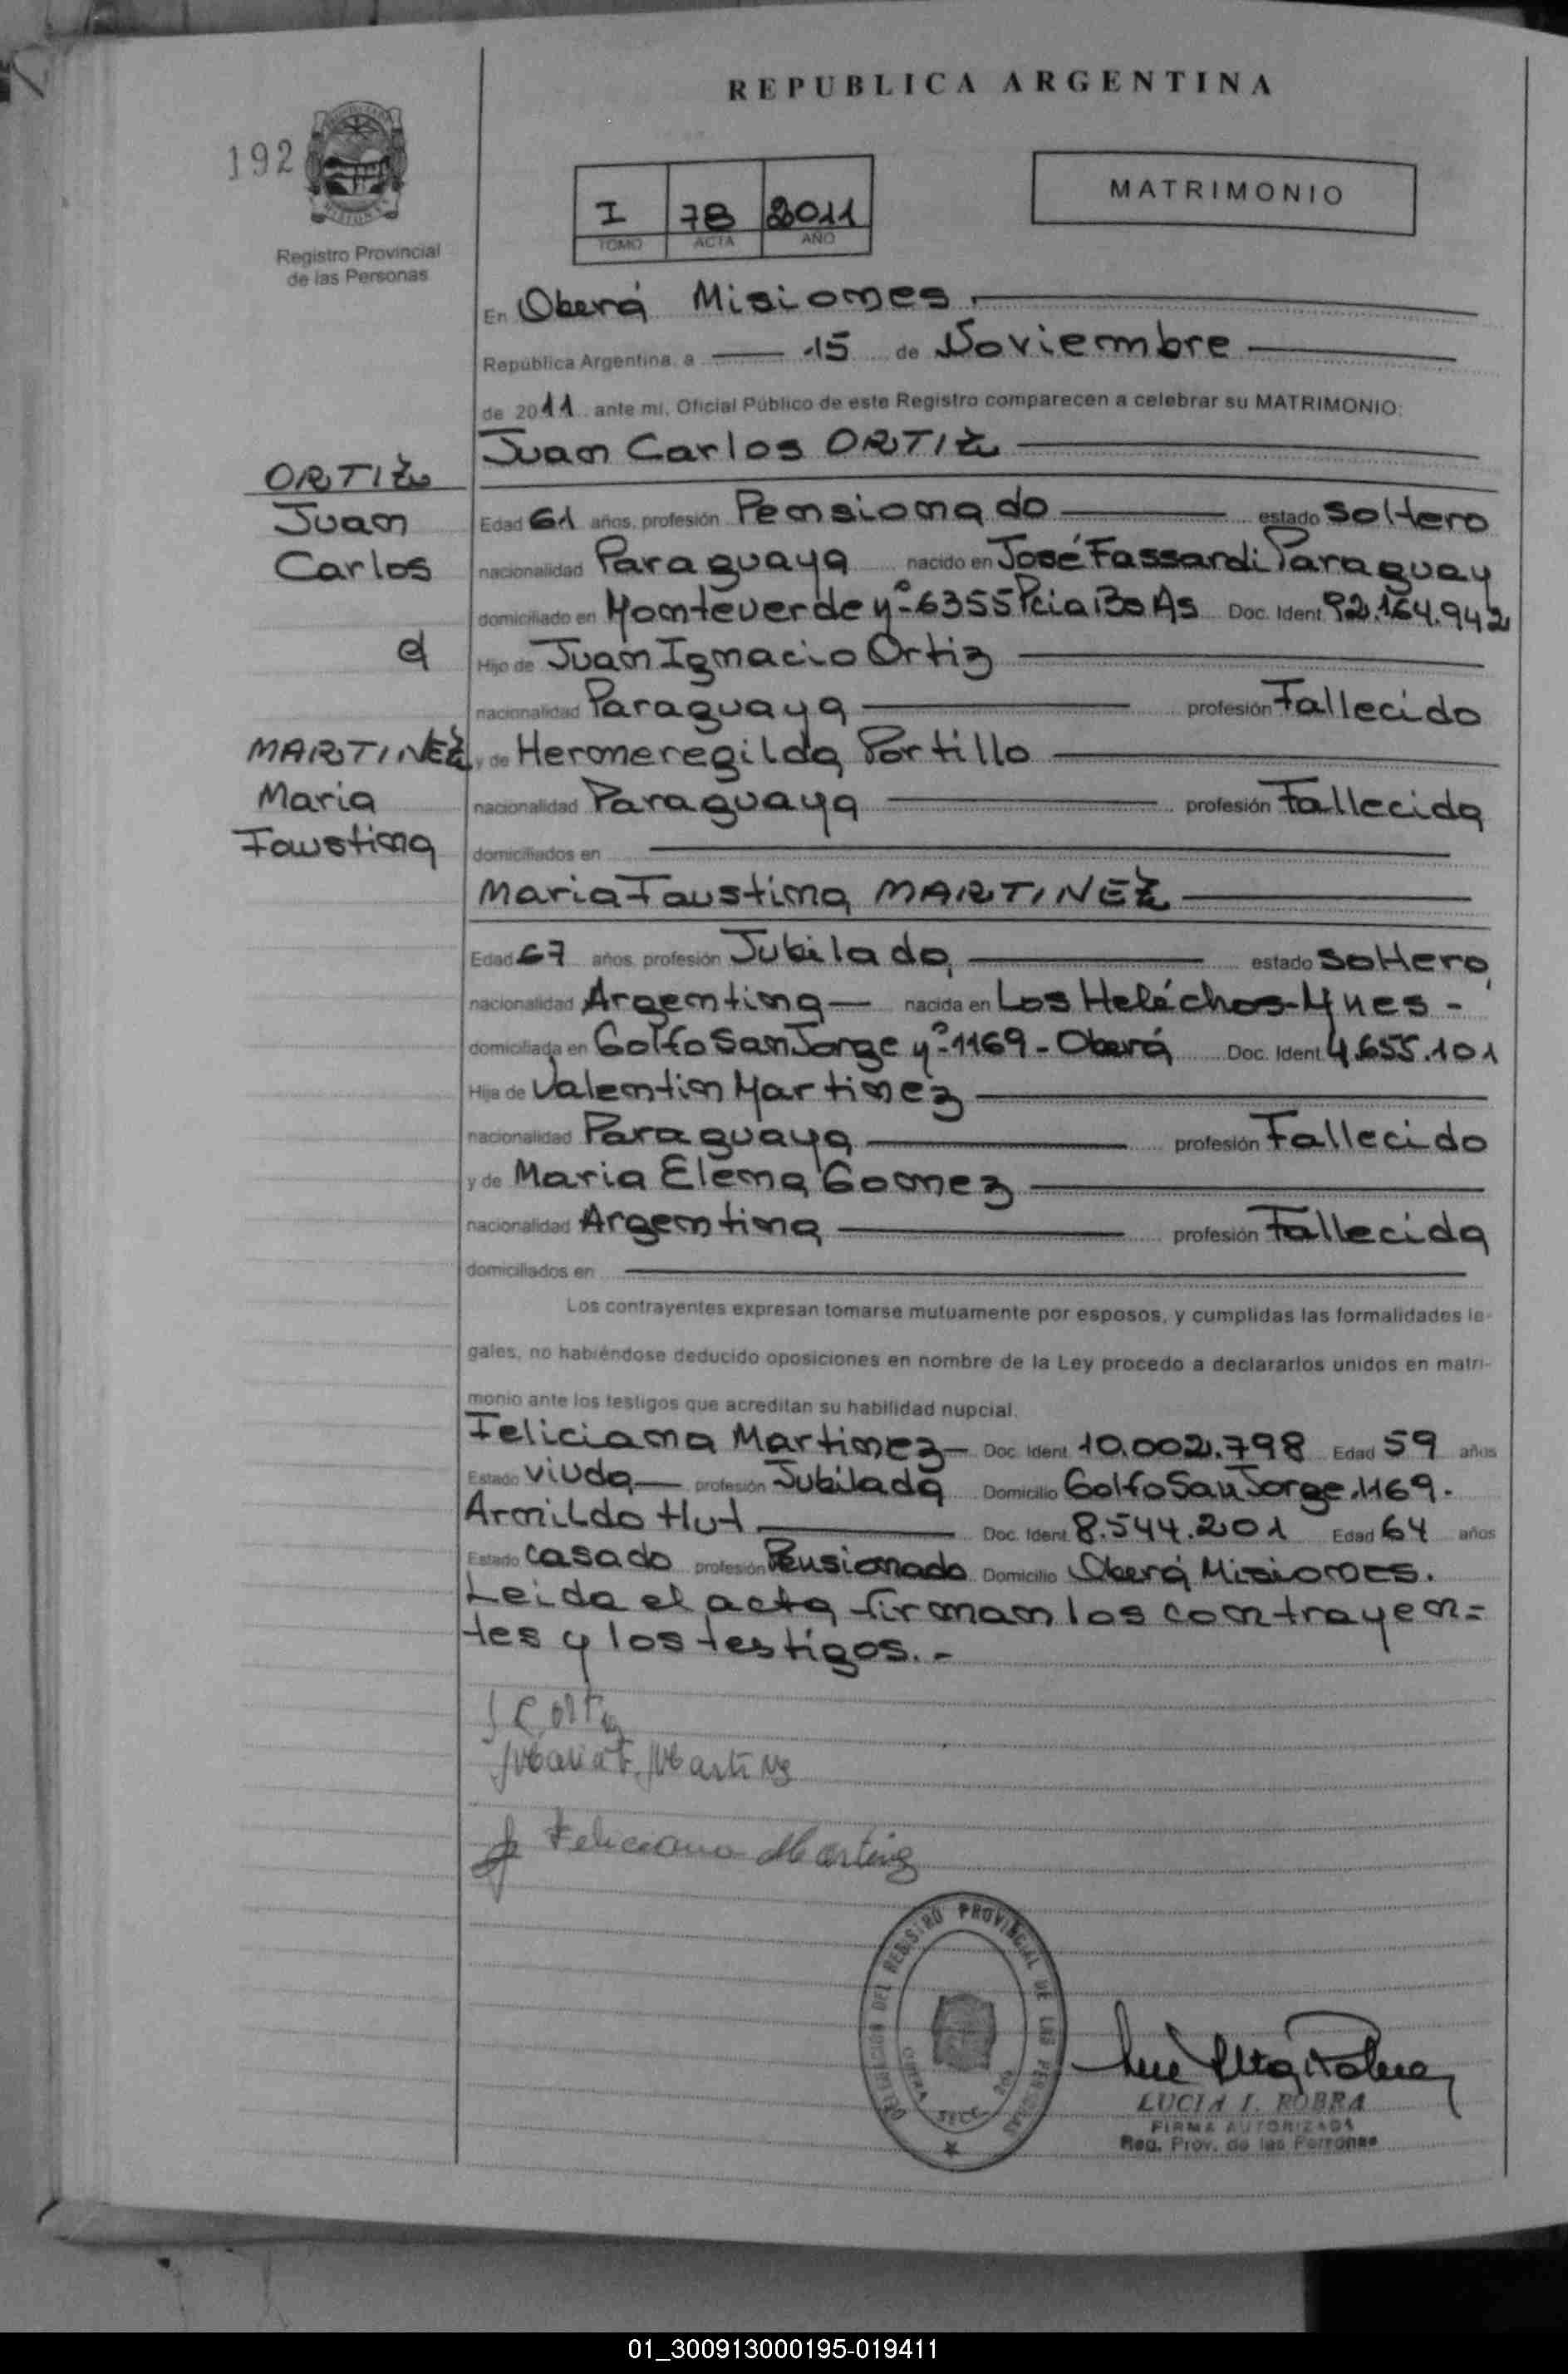 REPUBLICA ARGENTINA
192
Registro Provincial
de las Personas
I 78 2011
TOMO ACTA AÑO
MATRIMONIO
En Oberá Misiones
República Argentina, a 15 de Noviembre
de 2011 ante mí, Oficial Público de este Registro comparecen a celebrar su MATRIMONIO:
Juan Carlos ORTIZ
ORTIZ
Juan
Carlos
c/
MARTINEZ
Maria
Faustina
Edad 61 años, profesión Pensionado estado soltero
nacionalidad Paraguaya nacido en José Fassardi Paraguay
domiciliado en Monteverde Nº 6355 Pcia Bs As Doc. Ident. 92.164.942
Hijo de Juan Ignacio Ortiz
nacionalidad Paraguaya profesión Fallecido
y de Hermeregilda Portillo
nacionalidad Paraguaya profesión Fallecida
domiciliados en
Maria Faustina MARTINEZ
Edad 67 años, profesión Jubilada estado soltera
nacionalidad Argentina nacida en Los Heléchos-Mnes-
domiciliada en Golfo San Jorge Nº 1169 - Oberá Doc. Ident. 4.655.101
Hija de Valentin Martinez
nacionalidad Paraguaya profesión Fallecido
y de Maria Elena Gomez
nacionalidad Argentina profesión Fallecida
domiciliados en
Los contrayentes expresan tomarse mutuamente por esposos, y cumplidas las formalidades le-
gales, no habiéndose deducido oposiciones en nombre de la Ley procedo a declararlos unidos en matri-
monio ante los testigos que acreditan su habilidad nupcial.
Feliciana Martinez Doc. Ident. 10.002.798 Edad 59 años
Estado viuda profesión Jubilada Domicilio Golfo San Jorge 1169.
Arnildo Hut Doc. Ident. 8.544.201 Edad 64 años
Estado casado profesión Pensionado Domicilio Oberá Misiones.
Leida el acta firman los contrayen=
tes y los testigos.-
J C Ortiz
Maria F. Martinez
Feliciana Martinez
DELEGACION DEL REGISTRO PROVINCIAL DE LAS PERSONAS
OBERA SECC. 2da
LUCIA I. ROBRA
FIRMA AUTORIZADA
Reg. Prov. de las Personas
01_300913000195-019411